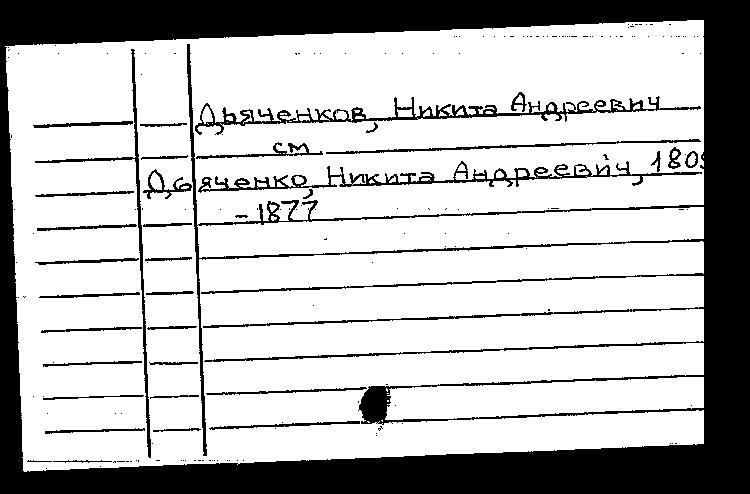 Дьяченков, Никита Андреевич
см.
Дьяченко, Никита Андреевич, 1809
-1877